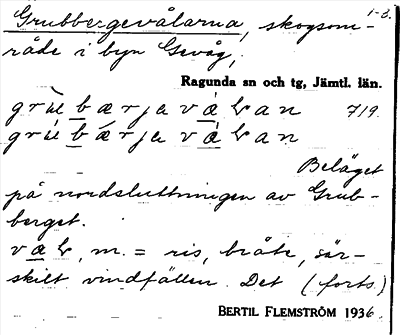 Grubbergevålarna, skogsom- 1-3.
råde i byn Gevåg,
Ragunda sn och tg, Jämtl. län.
grù b ær ja v á ɫ an 719.
grú b ær ja v á ɫ an
Beläget
på nordsluttningen av Grub-
berget.
væɫ, m. = ris, bråte, sär-
skilt vindfällen. Det (forts.)
BERTIL FLEMSTRÖM 1936.